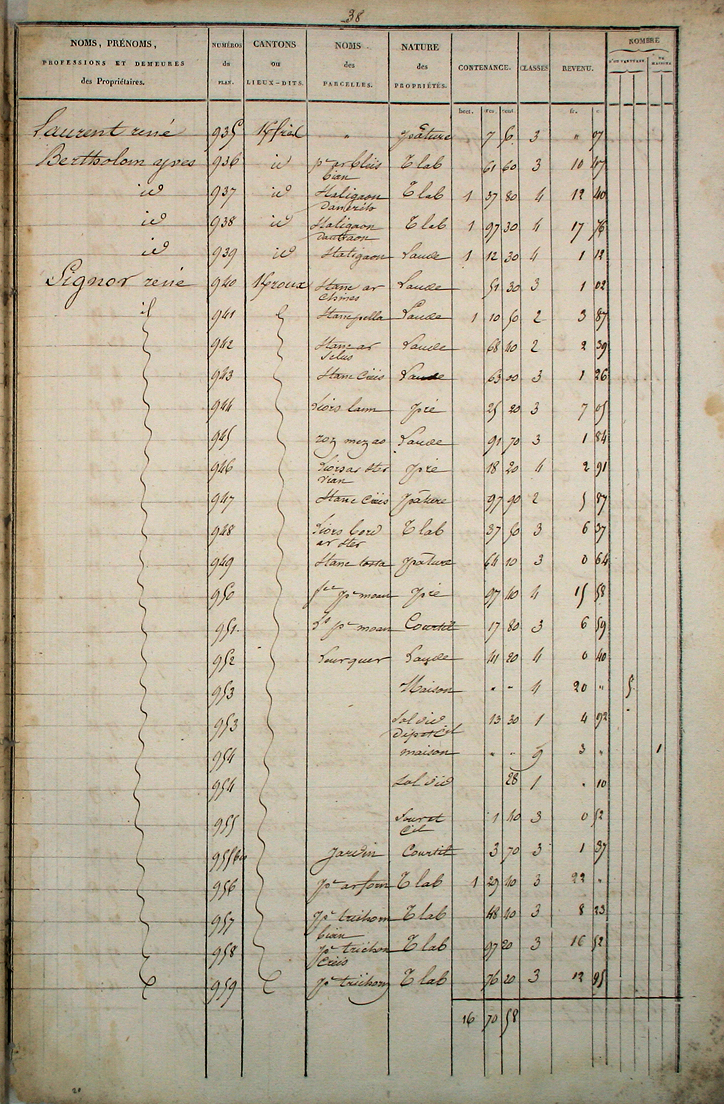 38
NOMS, PRÉNOMS, PROFESSIONS ET DEMEURES des Propriétaires. NUMÉROS du PLAN. CANTONS ou LIEUX-DITS. NOMS des PARCELLES. NATURE des PROPRIÉTÉS. CONTENANCE. CLASSES REVENU. NOMBRE
hect. ares cent. fr. c.
Laurent rené 935 " pature 7 50 3 " 97
Bertholom yves 936 id T lab 61 60 3 10 47
bian
id 937 id Haligaon T lab 1 37 80 4 12 40
id 938 id Haligaon T lab 1 97 30 4 17 76
id 939 id Haligaon Lande 1 12 30 4 1 12
Signor rené 940 Stanc ar Lande 51 30 3 1 02
941 Stanc pella Lande 1 10 50 2 3 87
942 Stanc ar Lande 68 40 2 2 39
943 Stanc Creis Lande 63 00 3 1 26
944 Liors lann pré 25 20 3 7 05
945 roz mezas Lande 91 70 3 1 84
946 Liors ar ster pré 18 20 4 2 91
vian
947 Stanc Creis pature 97 90 2 5 87
948 Liors T lab 37 50 3 6 37
ar ster
949 Stanc pature 64 10 3 0 64
950 pc moan pré 97 40 4 15 58
951 pc moan Courtil 17 80 3 6 59
952 Leurquer Lande 41 20 4 0 40
953 Maison " " 4 20 " 5
953 Sol id 13 30 1 4 92
954 maison " " 9 3 " 1
954 Sol id 28 1 " 10
955 1 40 3 0 52
955bis Jardin Courtil 3 70 3 1 37
956 pc ar forn T lab 1 29 40 3 22 "
957 pc trichon T lab 48 40 3 8 23
bian
958 pc trichon T lab 97 20 3 16 52
Creis
959 pc trichon T lab 76 20 3 12 95
16 70 58